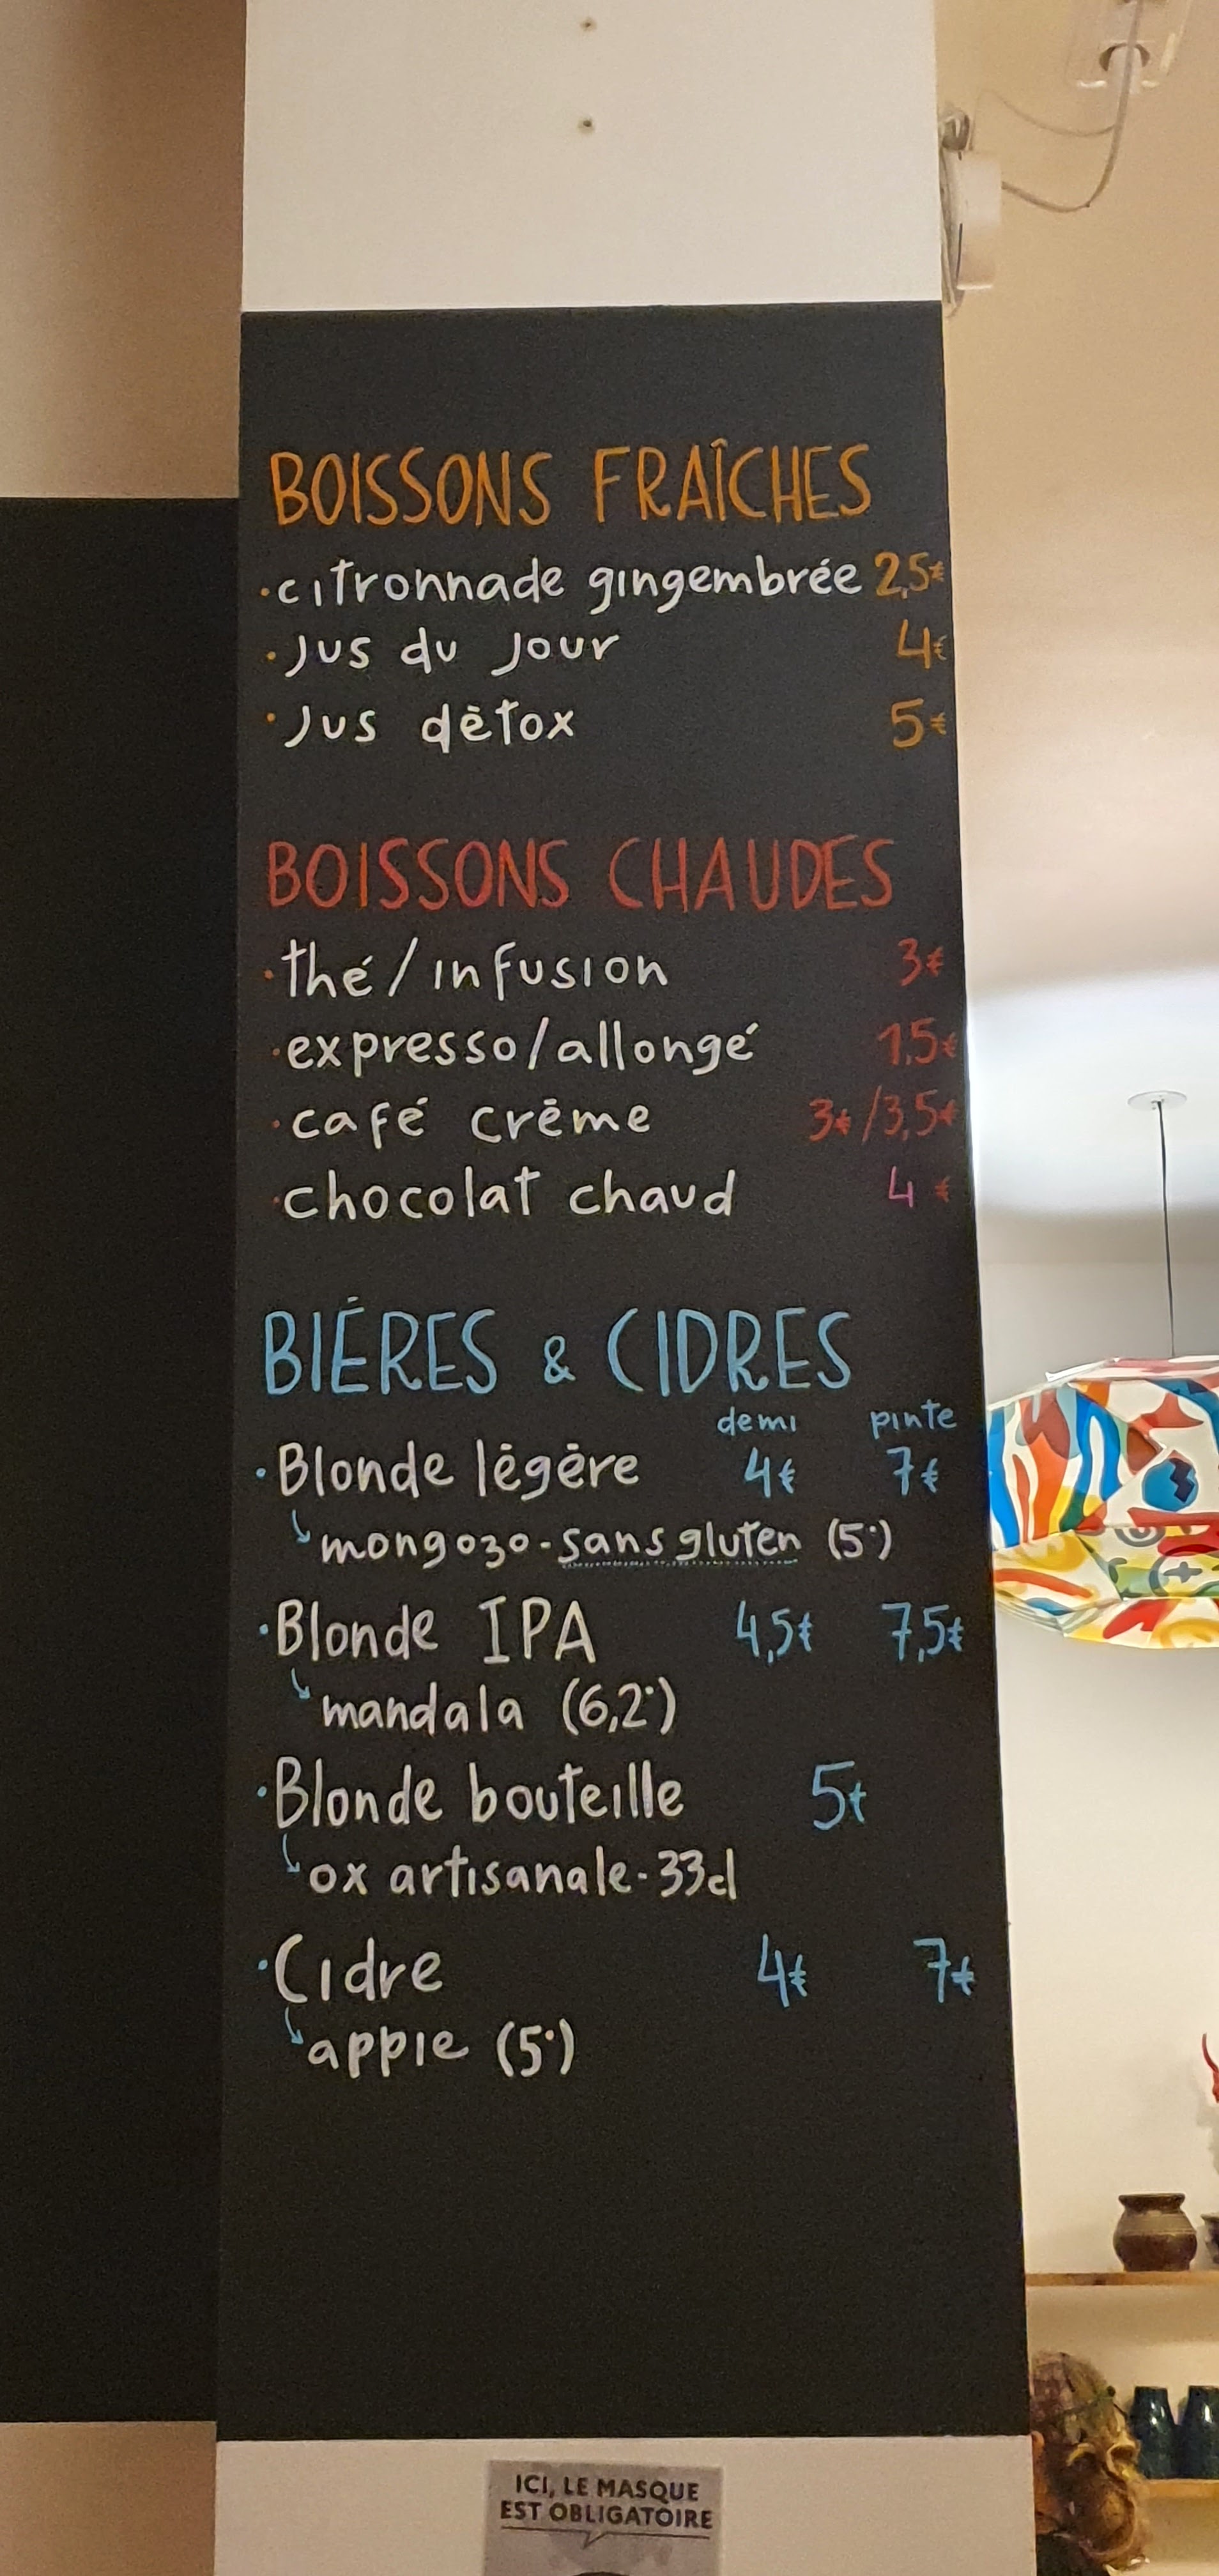 BOISSONS FRAÎCHES
· citronnade gingembrée 2,5€
· Jus du Jour 4€
· Jus détox 5€
BOISSONS CHAUDES
· thé / infusion 3€
· expresso/allongé 1,5€
· café crème 3€/3,5€
· chocolat chaud 4€
BIÈRES & CIDRES
demi pinte
· Blonde légère 4€ 7€
↳ mongozo - sans gluten (5°)
· Blonde IPA 4,5€ 7,5€
↳ mandala (6,2°)
· Blonde bouteille 5€
↳ ox artisanale - 33cl
· Cidre 4€ 7€
↳ appie (5°)
ICI, LE MASQUE
EST OBLIGATOIRE